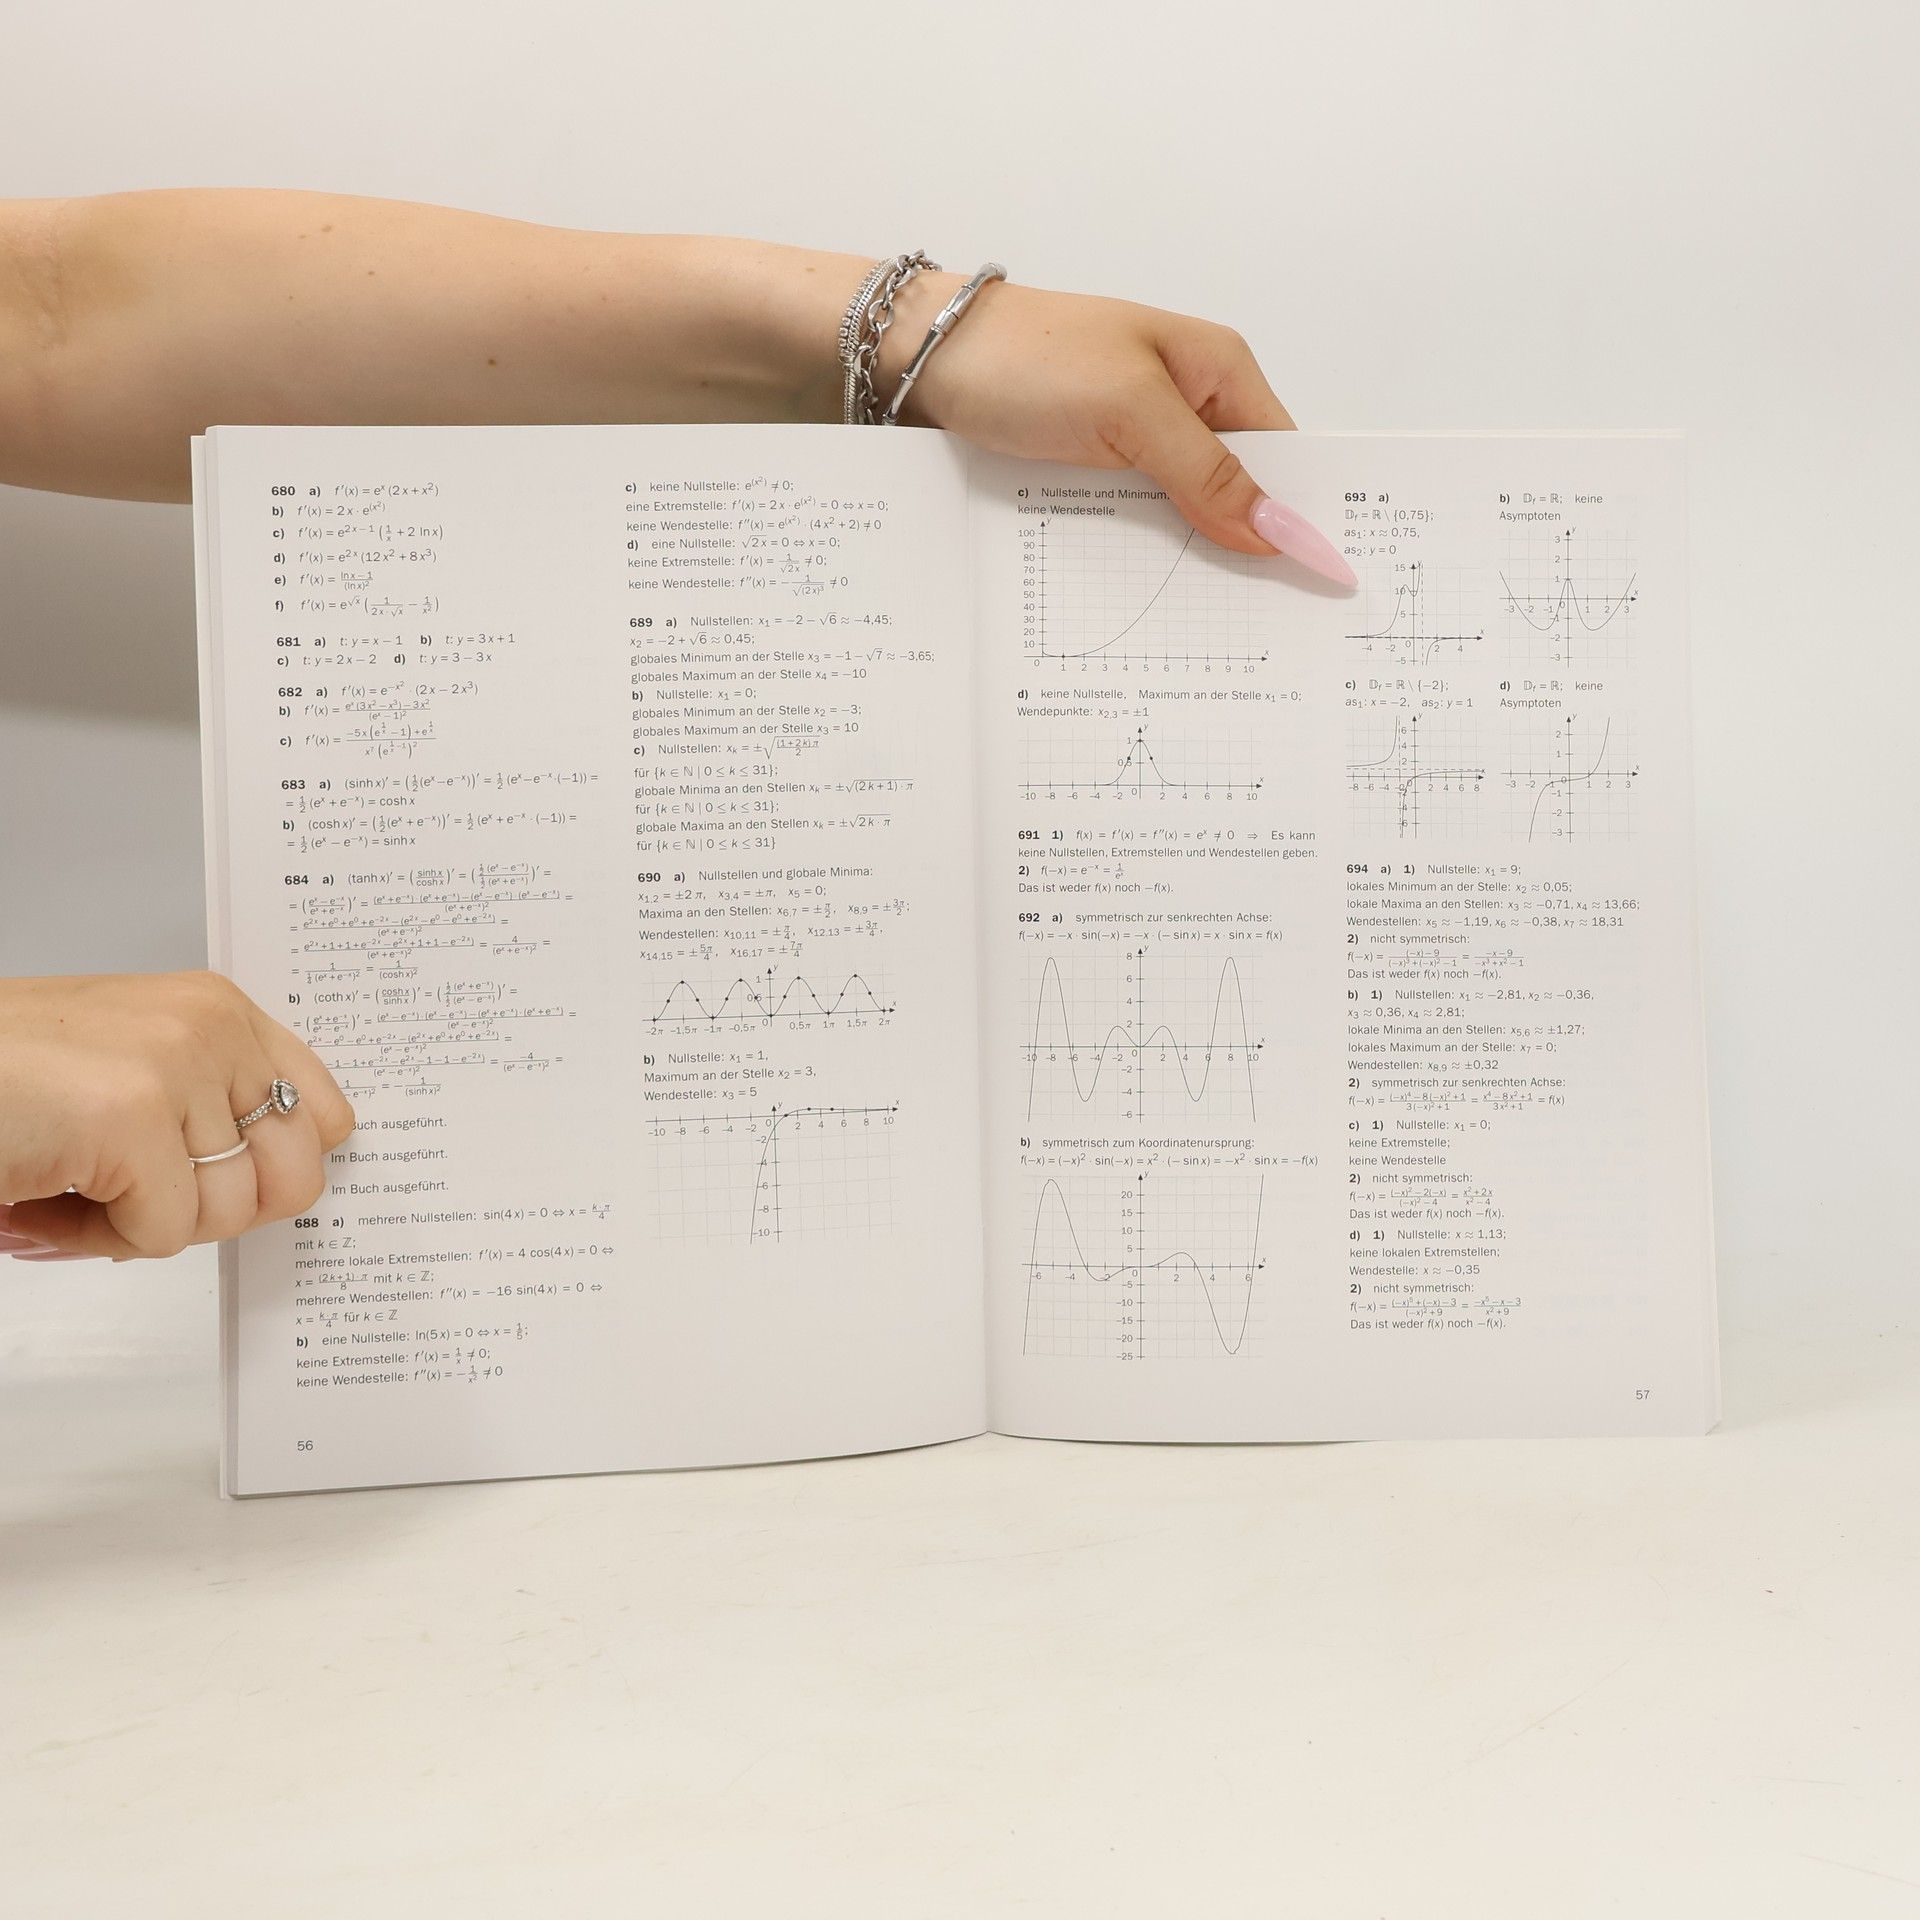 680 a) f'(x) = eˣ (2x + x²)
b) f'(x) = 2x · e^(x²)
c) f'(x) = e^(2x−1) (1/x + 2 ln x)
d) f'(x) = e^(2x) (12x² + 8x³)
e) f'(x) = (ln x − 1)/(ln x)²
f) f'(x) = e^(√x) (1/(2x·√x) − 1/x²)
681 a) t: y = x − 1 b) t: y = 3x + 1
c) t: y = 2x − 2 d) t: y = 3 − 3x
682 a) f'(x) = e^(−x²) · (2x − 2x³)
b) f'(x) = (eˣ(3x² − x³) − 3x²)/(eˣ − 1)²
c) f'(x) =
683 a) (sinh x)' = (½(eˣ − e⁻ˣ))' = ½ (eˣ − e⁻ˣ·(−1)) =
= ½ (eˣ + e⁻ˣ) = cosh x
b) (cosh x)' = (½(eˣ + e⁻ˣ))' = ½ (eˣ + e⁻ˣ · (−1)) =
= ½ (eˣ − e⁻ˣ) = sinh x
684 a) (tanh x)' = (sinh x/cosh x)' = (½(eˣ − e⁻ˣ)/½(eˣ + e⁻ˣ))' =
= ((eˣ − e⁻ˣ)/(eˣ + e⁻ˣ))' = ((eˣ + e⁻ˣ)·(eˣ + e⁻ˣ) − (eˣ − e⁻ˣ)·(eˣ − e⁻ˣ))/(eˣ + e⁻ˣ)² =
= (e²ˣ + e⁰ + e⁰ + e⁻²ˣ − (e²ˣ − e⁰ − e⁰ + e⁻²ˣ))/(eˣ + e⁻ˣ)² =
= (e²ˣ + 1 + 1 + e⁻²ˣ − e²ˣ + 1 + 1 − e⁻²ˣ)/(eˣ + e⁻ˣ)² = 4/(eˣ + e⁻ˣ)² =
= 1/(¼(eˣ + e⁻ˣ)²) = 1/(cosh x)²
b) (coth x)' = (cosh x/sinh x)' = (½(eˣ + e⁻ˣ)/½(eˣ − e⁻ˣ))' =
= ((eˣ + e⁻ˣ)/(eˣ − e⁻ˣ))' = ((eˣ − e⁻ˣ)·(eˣ − e⁻ˣ) − (eˣ + e⁻ˣ)·(eˣ + e⁻ˣ))/(eˣ − e⁻ˣ)² =
(e²ˣ − e⁰ − e⁰ + e⁻²ˣ − (e²ˣ + e⁰ + e⁰ + e⁻²ˣ))/(eˣ − e⁻ˣ)² =
−1 − 1 + e⁻²ˣ − e²ˣ − 1 − 1 − e⁻²ˣ)/(eˣ − e⁻ˣ)² = −4/(eˣ − e⁻ˣ)² =
= −1/(sinh x)²
Buch ausgeführt.
Im Buch ausgeführt.
Im Buch ausgeführt.
688 a) mehrere Nullstellen: sin(4x) = 0 ⇔ x = k·π/4
mit k ∈ ℤ;
mehrere lokale Extremstellen: f'(x) = 4 cos(4x) = 0 ⇔
x = (2k+1)·π/8 mit k ∈ ℤ;
mehrere Wendestellen: f''(x) = −16 sin(4x) = 0 ⇔
x = k·π/4 für k ∈ ℤ
b) eine Nullstelle: ln(5x) = 0 ⇔ x = 1/5;
keine Extremstelle: f'(x) = 1/x ≠ 0;
keine Wendestelle: f''(x) = −1/x² ≠ 0
56
c) keine Nullstelle: e^(x²) ≠ 0;
eine Extremstelle: f'(x) = 2x · e^(x²) = 0 ⇔ x = 0;
keine Wendestelle: f''(x) = e^(x²) · (4x² + 2) ≠ 0
d) eine Nullstelle: √(2x) = 0 ⇔ x = 0;
keine Extremstelle: f'(x) = 1/√(2x) ≠ 0;
keine Wendestelle: f''(x) = −1/√((2x)³) ≠ 0
689 a) Nullstellen: x₁ = −2 − √6 ≈ −4,45;
x₂ = −2 + √6 ≈ 0,45;
globales Minimum an der Stelle x₃ = −1 − √7 ≈ −3,65;
globales Maximum an der Stelle x₄ = −10
b) Nullstelle: x₁ = 0;
globales Minimum an der Stelle x₂ = −3;
globales Maximum an der Stelle x₃ = 10
c) Nullstellen: xₖ = ±√((1+2k)π/2)
für {k ∈ ℕ | 0 ≤ k ≤ 31};
globale Minima an den Stellen xₖ = ±√((2k+1)·π)
für {k ∈ ℕ | 0 ≤ k ≤ 31};
globale Maxima an den Stellen xₖ = ±√(2k·π)
für {k ∈ ℕ | 0 ≤ k ≤ 31}
690 a) Nullstellen und globale Minima:
x₁,₂ = ±2π, x₃,₄ = ±π, x₅ = 0;
Maxima an den Stellen: x₆,₇ = ±π/2, x₈,₉ = ±3π/2;
Wendestellen: x₁₀,₁₁ = ±π/4, x₁₂,₁₃ = ±3π/4,
x₁₄,₁₅ = ±5π/4, x₁₆,₁₇ = ±7π/4
y
1
0,5
−2π −1,5π −1π −0,5π 0 0,5π 1π 1,5π 2π x
b) Nullstelle: x₁ = 1,
Maximum an der Stelle x₂ = 3,
Wendestelle: x₃ = 5
y
−10 −8 −6 −4 −2 0 2 4 6 8 10 x
−2
−4
−6
−8
−10
c) Nullstelle und Minimum:
keine Wendestelle
y
100
90
80
70
60
50
40
30
20
10
0 1 2 3 4 5 6 7 8 9 10 x
d) keine Nullstelle, Maximum an der Stelle x₁ = 0;
Wendepunkte: x₂,₃ = ±1
y
1
0,5
−10 −8 −6 −4 −2 0 2 4 6 8 10 x
691 1) f(x) = f'(x) = f''(x) = eˣ ≠ 0 ⇒ Es kann
keine Nullstellen, Extremstellen und Wendestellen geben.
2) f(−x) = e⁻ˣ = 1/eˣ
Das ist weder f(x) noch −f(x).
692 a) symmetrisch zur senkrechten Achse:
f(−x) = −x · sin(−x) = −x · (− sin x) = x · sin x = f(x)
y
8
6
4
2
−10 −8 −6 −4 −2 0 2 4 6 8 10 x
−2
−4
−6
b) symmetrisch zum Koordinatenursprung:
f(−x) = (−x)² · sin(−x) = x² · (− sin x) = −x² · sin x = −f(x)
y
20
15
10
5
−6 −4 −2 0 2 4 6 x
−5
−10
−15
−20
−25
693 a)
𝔻f = ℝ \ {0,75};
as₁: x ≈ 0,75,
as₂: y = 0
y
15
10
5
−4 −2 0 2 4 x
−5
b) 𝔻f = ℝ; keine
Asymptoten
y
3
2
1
−3 −2 −1 0 1 2 3 x
−1
−2
−3
c) 𝔻f = ℝ \ {−2};
as₁: x = −2, as₂: y = 1
y
6
4
2
−8 −6 −4 −2 0 2 4 6 8 x
−2
−4
−6
d) 𝔻f = ℝ; keine
Asymptoten
y
2
1
−3 −2 −1 0 1 2 3 x
−1
−2
−3
694 a) 1) Nullstelle: x₁ = 9;
lokales Minimum an der Stelle: x₂ ≈ 0,05;
lokale Maxima an den Stellen: x₃ ≈ −0,71, x₄ ≈ 13,66;
Wendestellen: x₅ ≈ −1,19, x₆ ≈ −0,38, x₇ ≈ 18,31
2) nicht symmetrisch:
f(−x) = ((−x) − 9)/((−x)³ + (−x)² − 1) = (−x − 9)/(−x³ + x² − 1)
Das ist weder f(x) noch −f(x).
b) 1) Nullstellen: x₁ ≈ −2,81, x₂ ≈ −0,36,
x₃ ≈ 0,36, x₄ ≈ 2,81;
lokale Minima an den Stellen: x₅,₆ ≈ ±1,27;
lokales Maximum an der Stelle: x₇ = 0;
Wendestellen: x₈,₉ ≈ ±0,32
2) symmetrisch zur senkrechten Achse:
f(−x) = ((−x)⁴ − 8(−x)² + 1)/(3(−x)² + 1) = (x⁴ − 8x² + 1)/(3x² + 1) = f(x)
c) 1) Nullstelle: x₁ = 0;
keine Extremstelle;
keine Wendestelle
2) nicht symmetrisch:
f(−x) = ((−x)² − 2(−x))/((−x)² − 4) = (x² + 2x)/(x² − 4)
Das ist weder f(x) noch −f(x).
d) 1) Nullstelle: x ≈ 1,13;
keine lokalen Extremstellen;
Wendestelle: x ≈ −0,35
2) nicht symmetrisch:
f(−x) = ((−x)⁵ + (−x) − 3)/((−x)² + 9) = (−x⁵ − x − 3)/(x² + 9)
Das ist weder f(x) noch −f(x).
57